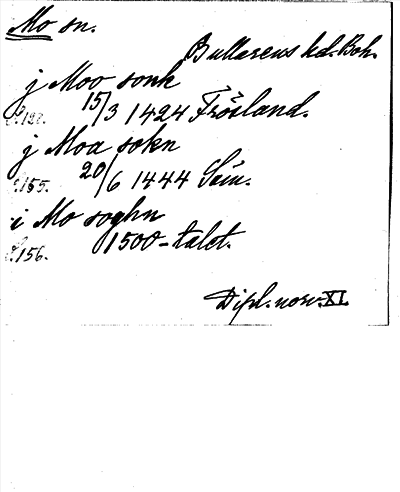 Mo sn.
Bullarens hd. Boh.
j Moo sonk
s. 122. 15/3 1424 Frösland.
j Moa sokn
s. 155. 20/6 1444
i Mo soghn
s. 156. 1500-talet.
Dipl. norv. XI.